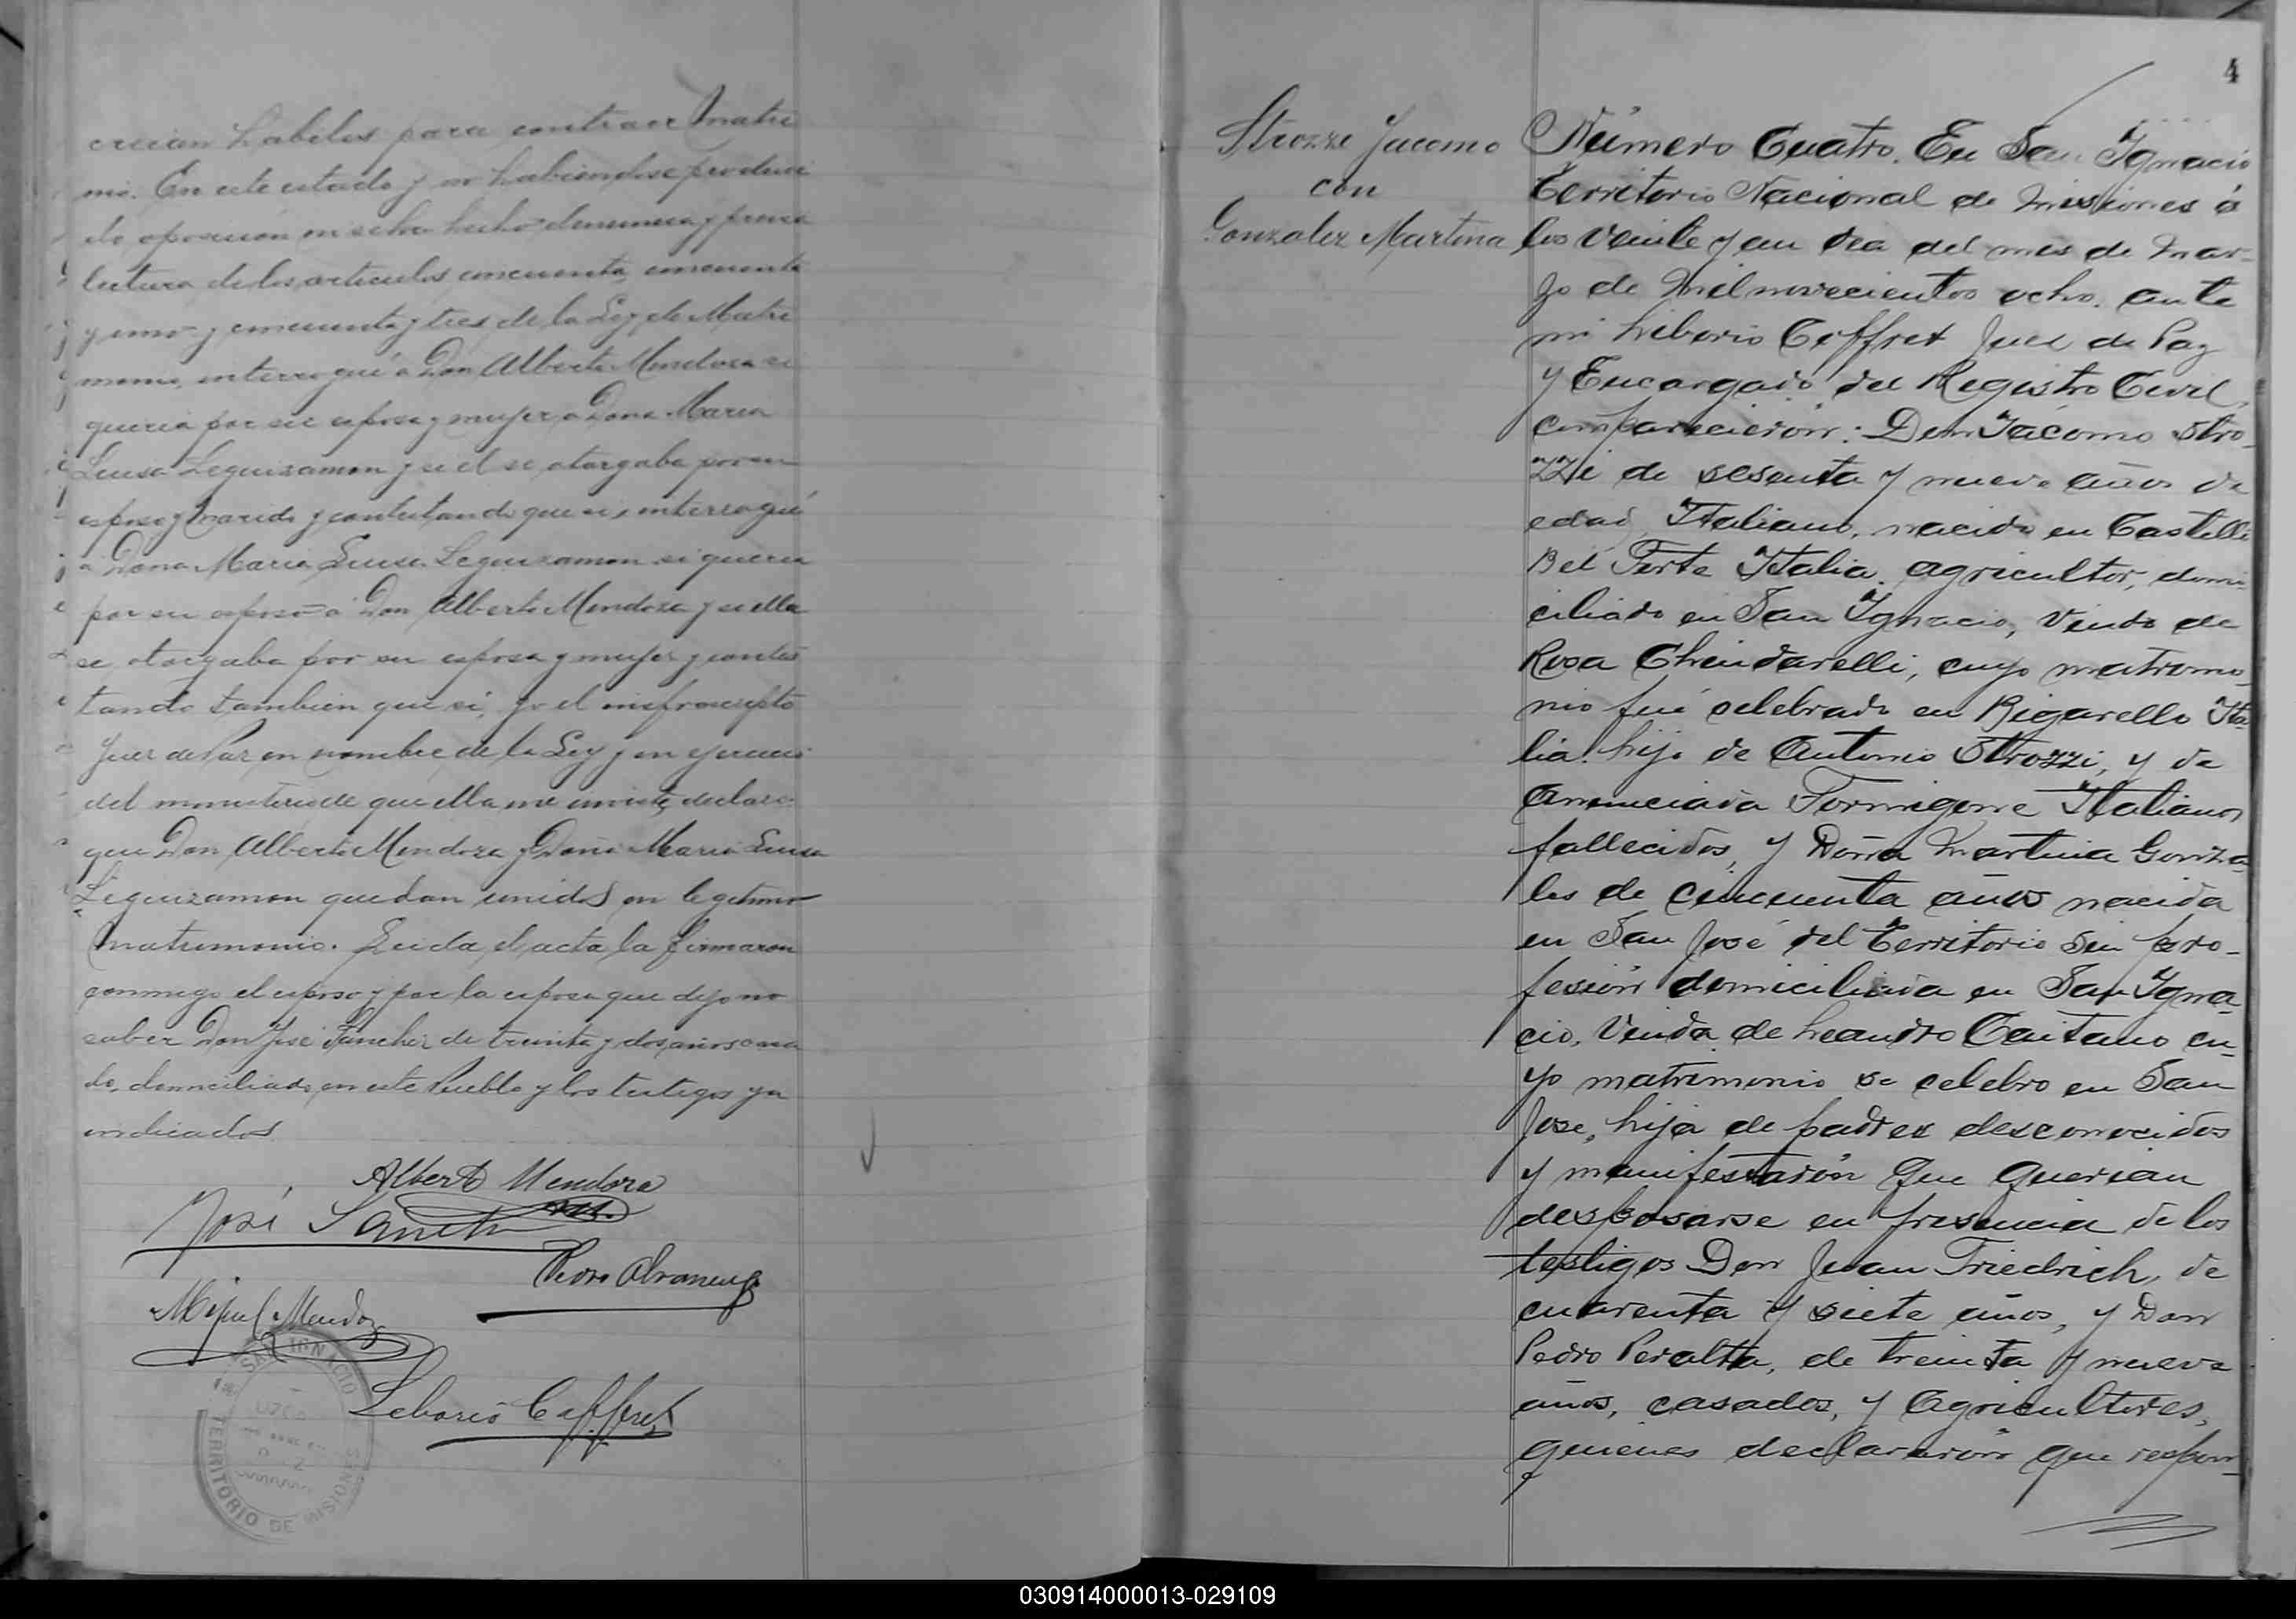 creian habiles para contraer matri
nio. En este estado y no habiendose produci
do oposicion ni se ha hecho denuncia y previa
lectura de los articulos cincuenta, cincuenta
y uno y cincuenta y tres de la Ley de Matri
monio, interrogué a Don Alberto Mendoza si
queria por su esposa y mujer a Dona Maria
Luisa Leguizamon y si el se otorgaba por su
esposo y marido y contestando que si, interrogué
a Dona Maria Luisa Leguizamon si queria
por su esposo a Don Alberto Mendoza y si ella
se otorgaba por su esposa y mujer y contes
tando tambien que si, yo el infrascripto
Juez de Paz en nombre de la Ley y en ejercicio
del ministerio de que ella me inviste, declaro:
que Don Alberto Mendoza y Doña Maria Luisa
Leguizamon quedan unidos en legitimo
matrimonio. Leida el acta la firmaron
conmigo el esposo y por la esposa que dijo no
saber Don José Sanchez de treinta y dos años casa
do, domiciliado en este Pueblo y los testigos ya
indicados
Alberto Mendoza
José Sanch
Pedro
Miguel Mendoz
Leborio Caffret
SAN IGNACIO
TERRITORIO DE MISIONES
4
Strozze Jacomo
con
Gonzalez Martina
Número Cuatro. En San Ignacio
Territorio Nacional de Misiones á
los veinte y un dia del mes de Mar-
zo de Mil novecientos ocho. ante
mi Liborio Coffret Juez de Paz
y Encargado del Registro Civil,
comparecieron: Don Jácomo Stro-
zzi de sesenta y nueve años de
edad, Italiano, nacido en Castelli
Bel Forte Italia. agricultor, domi-
ciliado en San Ignacio, Viudo de
Rosa Chindarelli, cuyo matrimo-
nio fué celebrado en Bigarello Ita-
lia. hijo de Antonio Strozzi, y de
Anunciada Formigone Italianos
fallecidos, y Doña Martina Gonza-
les de cincuenta años nacida
en San José del Territorio Sin pro-
fesión domiciliada en San Igna-
cio, Viuda de Leandro Caitano cu-
yo matrimonio se celebro en San
Jose, hija de padres desconocidos
y manifestarón Que querian
desposarse en presencia de los
testigos Don Juan Friedrich, de
cuarenta y siete años, y Don
Pedro Peralta, de treinta y nueve
años, casados, y Agricultores,
quienes declararón que respon-
030914000013-029109